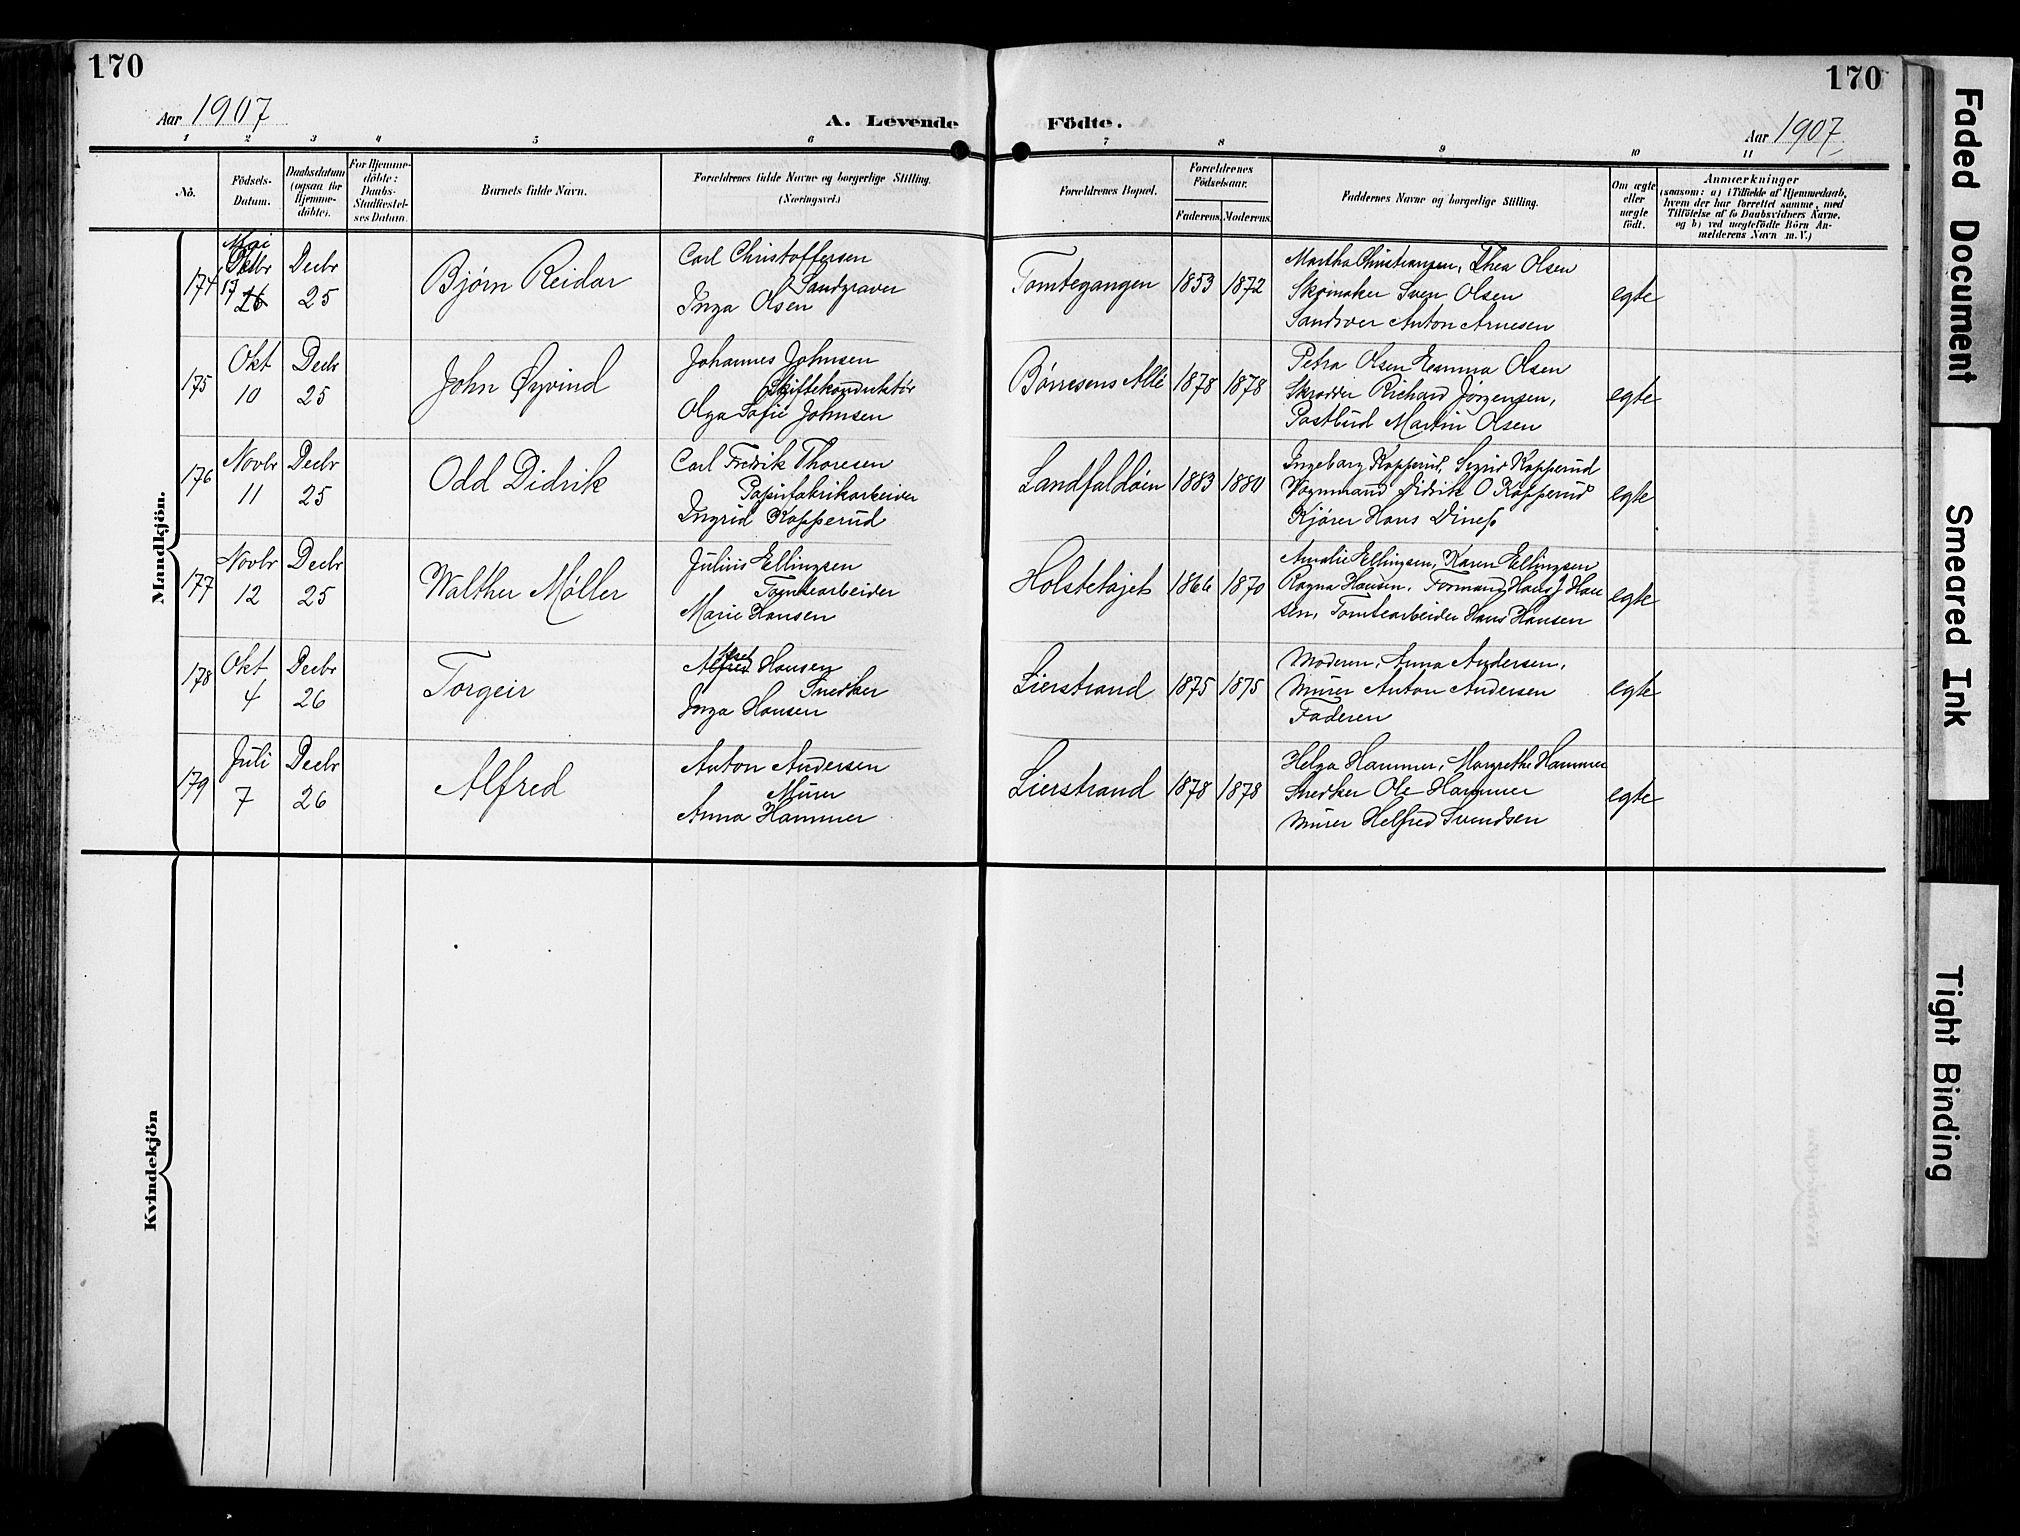 170
170
Aar 1907
A. Levende
Födte.
Aar 1907.
1 2 3 4 5 6 7 8 9 10 11
No.
Födsels-
Datum.
Daabsdatum
(ogsaa for
Hjemme-
döbte).
For Hjemme-
döbte:
Daabs-
Stadfæstel-
ses Datum.
Barnets fulde Navn.
Forældrenes fulde Navne og borgerlige Stilling.
(Næringsvei.)
Forældrenes Bopæl.
Forældrenes
Födselsaar.
Faderens. Moderens.
Faddernes Navne og borgerlige Stilling.
Om ægte
eller
uægte
födt.
Anmærkninger
(saasom: a) i Tilfælde af Hjemmedaab,
hvem der har forrettet samme, med
Tilföielse af to Daabsvidners Navne.
og b) ved uægtefödte Börn An-
melderens Navn m. V.)
Mandkjön.
174
Mai
Oktbr
13
26
Decbr
25
Bjørn Reidar
Carl Christoffersen
Sandgraver
Inga Olsen
Tomtegangen
1853
1872
Martha Christiansen, Thea Olsen
Skomaker Sven Olsen
Anton Arnesen
egte
175
Okt
10
Decbr
25
John Øyvind
Johannes Johnsen
Skiftekonduktør
Olga Sofie Johnsen
Børresens Allé
1878
1878
Petra Olsen Emma Olsen
Skrædder Richard Jørgensen,
Postbud Martin Olsen
egte
176
Novbr
11
Decbr
25
Odd Didrik
Carl Fredrik Thoresen
Papirfabrikarbeider
Ingrid Kopperud
Landfaldøien
1883
1880
Ingeborg Kopperud, Sigrid Kopperud
Vognmand Didrik O Kopperud
Kjører Hans
egte
177
Novbr
12
Decbr
25
Walther Møller
Julius Ellingsen
Tomtearbeider
Marie Hansen
Holstehaget
1866
1870
Amalie Ellingsen, Karen Ellingsen
Ragna Hansen, Formand Hans J Han
sen, Tomtearbeider Hans Hansen
egte
178
Okt
4
Decbr
26
Torgeir
Axel
Alfred Hansen
Snedker
Inga Hansen
Lierstrand
1875
1875
Moderen, Anna Andersen,
Murer Anton Andersen
Faderen
egte
179
Juli
7
Decbr
26
Alfred
Anton Andersen
Murer
Anna Hammer
Lierstrand
1878
1878
Helga Hammer, Margrethe Hammer
Snedker Ole Hammer
Murer Helfred Svendsen
egte
Kvindekjön
Faded Document
Smeared Ink
Tight Binding